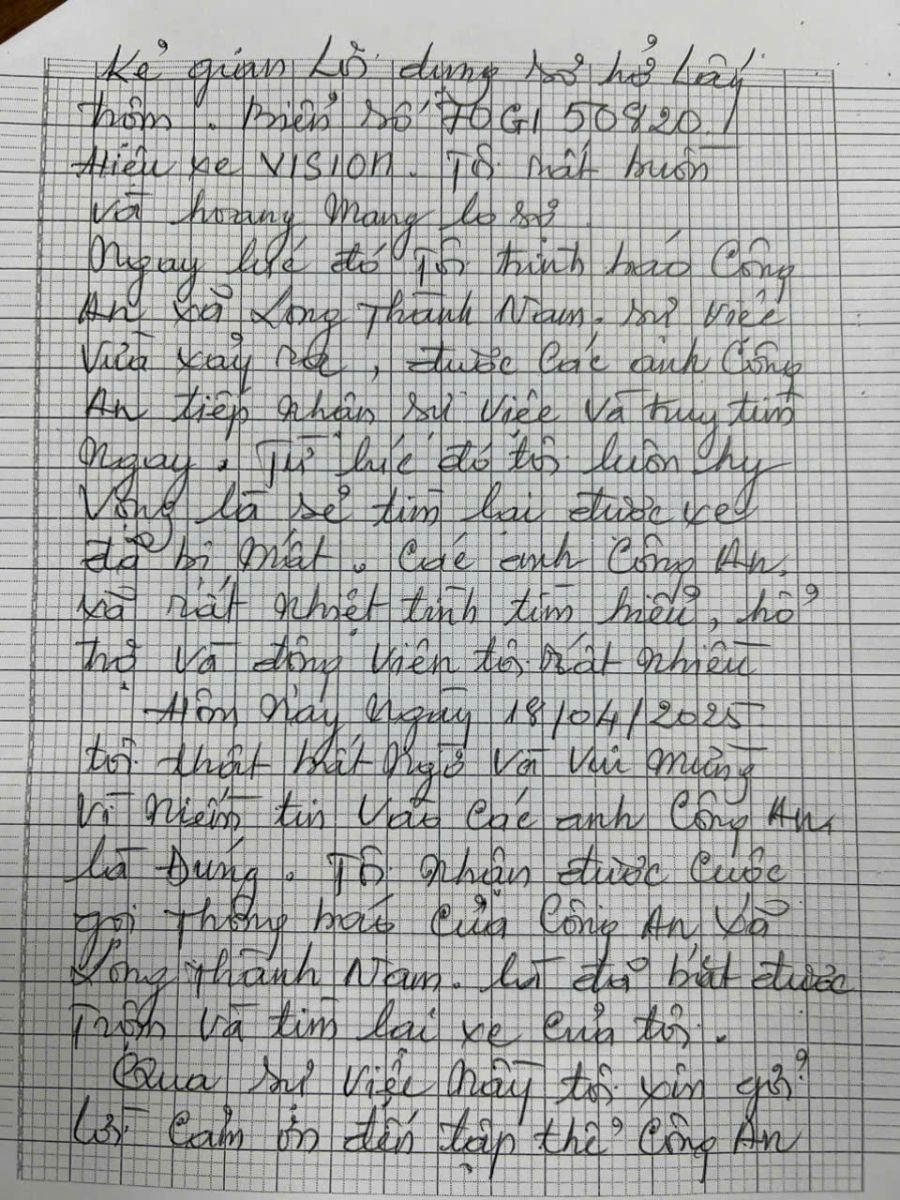 Kẻ gian Lợi dụng sơ hở Lấy
trộm. Biển số 70G1 50820.
Hiệu xe VISION. Tôi rất buồn
và hoang mang lo sợ.
Ngay lúc đó Tôi trình báo Công
An xã Long Thành Nam. sự việc
vừa xảy ra, được Các anh Công
An tiếp nhận sự việc và truy tìm
ngay. Từ lúc đó tôi luôn hy
vọng là sẽ tìm lại được xe
đã bị mất. Các anh Công An,
xã rất nhiệt tình tìm hiểu, hổ
trợ và động viên tôi rất nhiều
Hôm nay ngày 18/04/2025
tôi thật bất ngờ và vui mừng
vì niềm tin vào Các anh Công An,
là Đúng. Tôi nhận được Cuộc
gọi Thông báo của Công An xã
Long Thành Nam. là đã bắt được
Trộm và tìm lại xe của tôi.
Qua sự việc này tôi xin gởi
lời Cảm ơn đến tập thể Công An